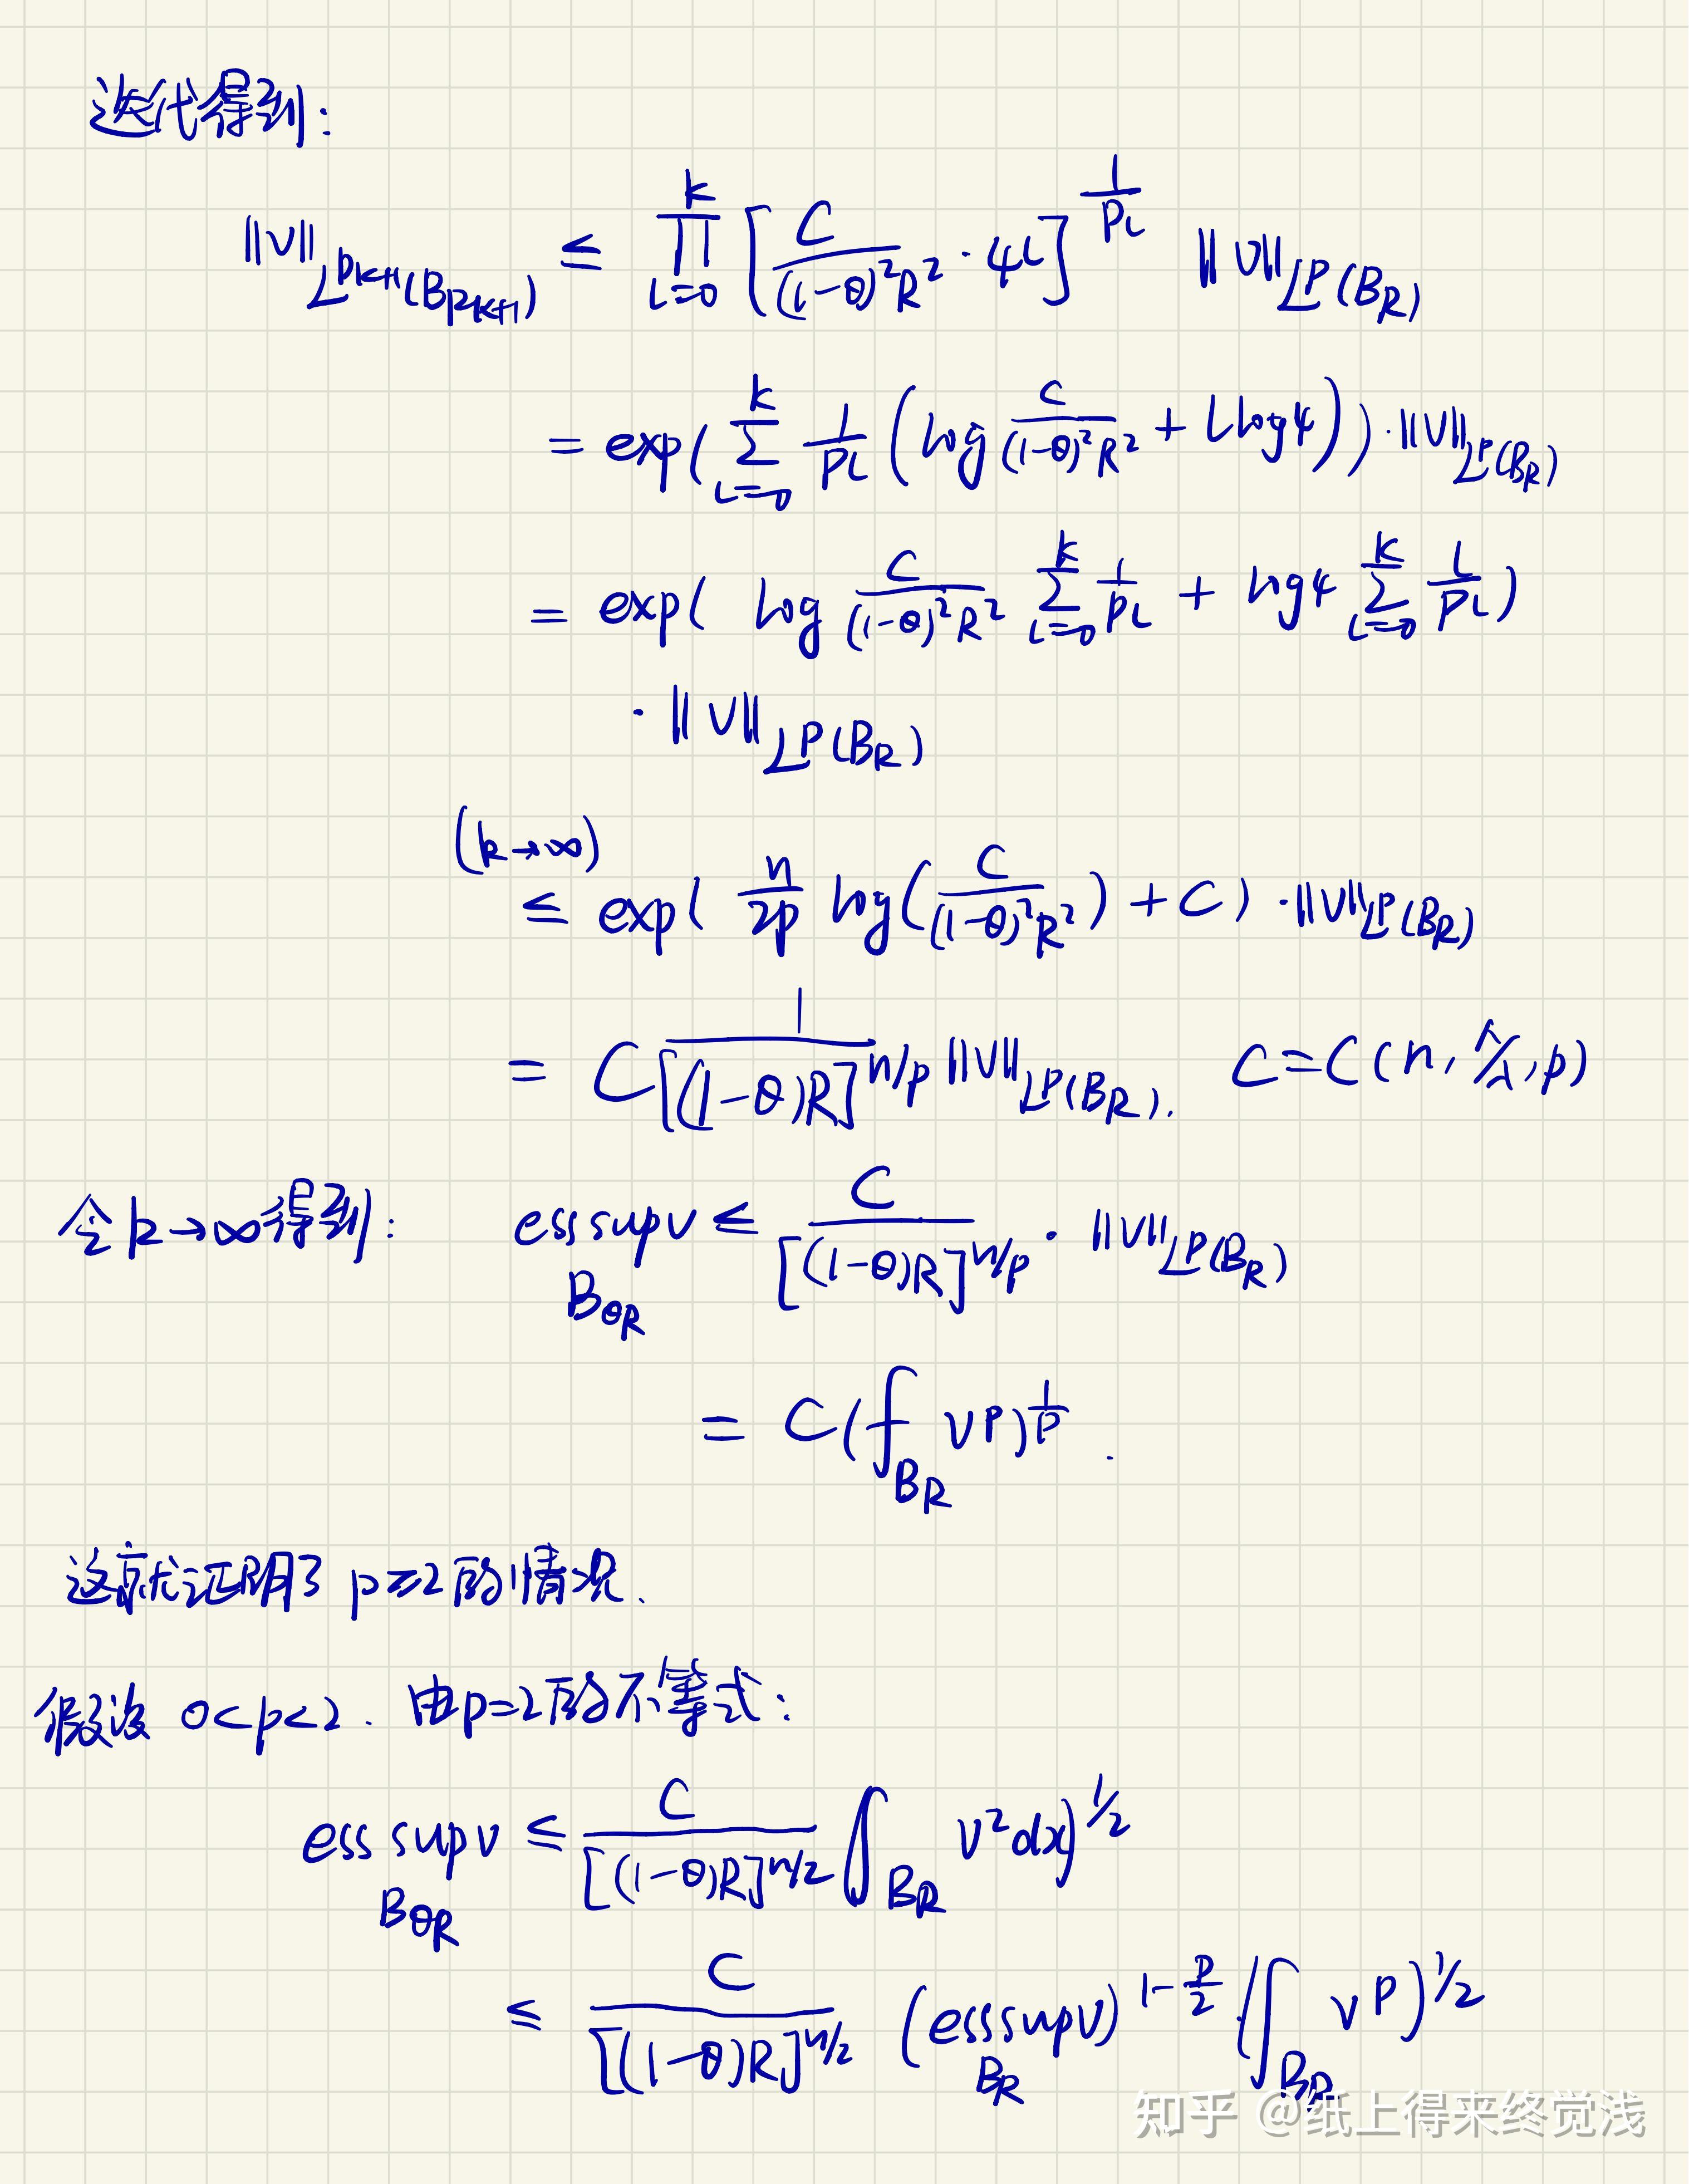 迭代得到:
$\|v\|_{L^{p_{k+1}}(B_{R_{k+1}})} \le \prod_{l=0}^{k} \left[\frac{C}{(1-\theta)^2R^2} \cdot 4^l\right]^{\frac{1}{p_l}} \|v\|_{L^p(B_R)}$
$= \exp\left(\sum_{l=0}^{k} \frac{1}{p_l}\left(\log\frac{C}{(1-\theta)^2R^2} + l\log 4\right)\right) \cdot \|v\|_{L^p(B_R)}$
$= \exp\left(\log\frac{C}{(1-\theta)^2R^2} \sum_{l=0}^{k}\frac{1}{p_l} + \log 4 \sum_{l=0}^{k}\frac{l}{p_l}\right)$
$\cdot \|v\|_{L^p(B_R)}$
$(k\to\infty)$
$\le \exp\left(\frac{n}{2p}\log\left(\frac{C}{(1-\theta)^2R^2}\right) + C\right) \cdot \|v\|_{L^p(B_R)}$
$= C\frac{1}{[(1-\theta)R]^{n/p}} \|v\|_{L^p(B_R)}. \quad C = C(n, \Lambda/\lambda, p)$
令 $k\to\infty$ 得到: $\operatorname{ess\,sup}_{B_{\theta R}} v \le \frac{C}{[(1-\theta)R]^{n/p}} \cdot \|v\|_{L^p(B_R)}$
$= C\left(⨍_{B_R} v^p\right)^{\frac{1}{p}}.$
这就证明了 $p\ge 2$ 的情况.
假设 $0<p<2$. 由 $p=2$ 的不等式:
$\operatorname{ess\,sup}_{B_{\theta R}} v \le \frac{C}{[(1-\theta)R]^{n/2}} \left(\int_{B_R} v^2 dx\right)^{1/2}$
$\le \frac{C}{[(1-\theta)R]^{n/2}} \left(\operatorname{ess\,sup}_{B_R} v\right)^{1-\frac{p}{2}} \left(\int_{B_R} v^p\right)^{1/2}$
知乎 @纸上得来终觉浅